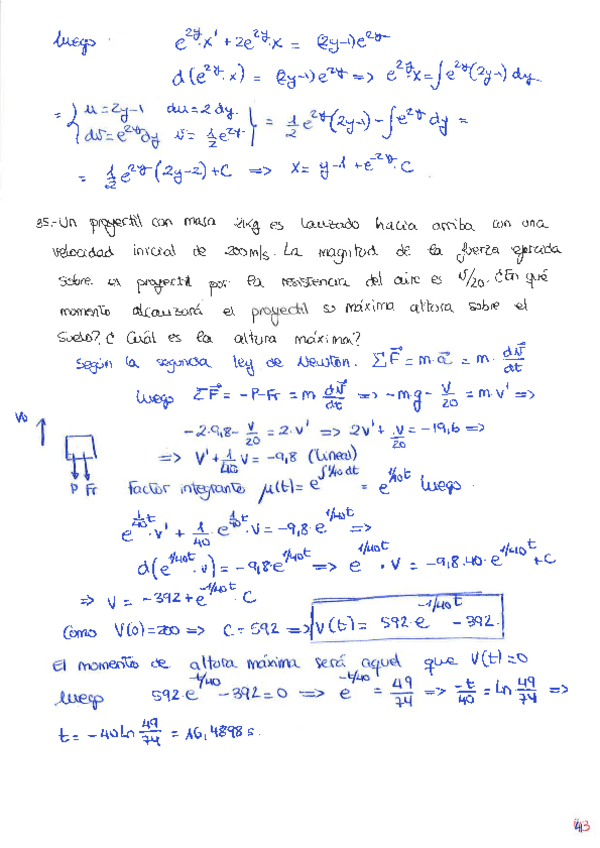 luego e^{2y}·x' + 2e^{2y}·x = (2y-1)e^{2y}
d(e^{2y}·x) = (2y-1)e^{2y} => e^{2y}·x = ∫e^{2y}(2y-1)dy.
= { u = 2y-1 du = 2dy. dv = e^{2y}dy v = 1/2 e^{2y}. } = 1/2 e^{2y}(2y-1) - ∫e^{2y}dy =
= 1/2 e^{2y}(2y-2) + C => x = y-1 + e^{-2y}·C.
35.- Un proyectil con masa 2kg es lanzado hacia arriba con una
velocidad inicial de 200m/s. La magnitud de la fuerza ejercida
sobre el proyectil por la resistencia del aire es v/20. ¿En qué
momento alcanzará el proyectil su máxima altura sobre el
suelo? ¿Cuál es la altura máxima?
Según la segunda ley de Newton. ΣF⃗ = m·a⃗ = m·dv⃗/dt
luego ΣF⃗ = -P-Fr = m dv⃗/dt => -mg - v/20 = m·v' =>
V0
-2·9,8 - v/20 = 2·v' => 2v' + v/20 = -19,6 =>
=> v' + 1/40 v = -9,8 (lineal)
P Fr
Factor integrante μ(t) = e^{∫1/40 dt} = e^{1/40t} luego.
e^{1/40t}·v' + 1/40·e^{1/40t}·v = -9,8·e^{1/40t} =>
d(e^{1/40t}·v) = -9,8·e^{1/40t} => e^{1/40t}·v = -9,8·40·e^{1/40t} + C
=> v = -392 + e^{-1/40t}·C
Como V(0) = 200 => C = 592 => V(t) = 592·e^{-1/40t} - 392.
El momento de altura máxima será aquel que V(t) = 0
luego 592·e^{-t/40} - 392 = 0 => e^{-t/40} = 49/74 => -t/40 = ln 49/74 =>
t = -40 ln 49/74 = 16,4898 s.
43